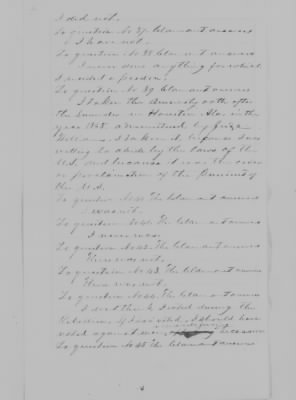 I did not.
To question No 37 Claimant answers
I have not.
To question No 38 Claimant answers
I never done anything for which
I needed a pardon.
To question No 39 Claimant answers
I taken the amnesty oath after
the Surrender in Houston Ala. in the
year 1865. administered by Judge
I taken it because I was
willing to abide by the laws of the
U.S. and because it was the order
or proclamation of the President of
the U.S.
To question No 40 The Claimant answers
I was not.
To question No 41 The Claimant answers
I never was.
To question No 42 The Claimant answers
There was not.
To question No 43 The Claimant answers
There was not.
To question No 44 The Claimant answers
I don't think I voted during the
Rebellion, if I had voted, I should have
voted against secession
To question No 45 The Claimant answers